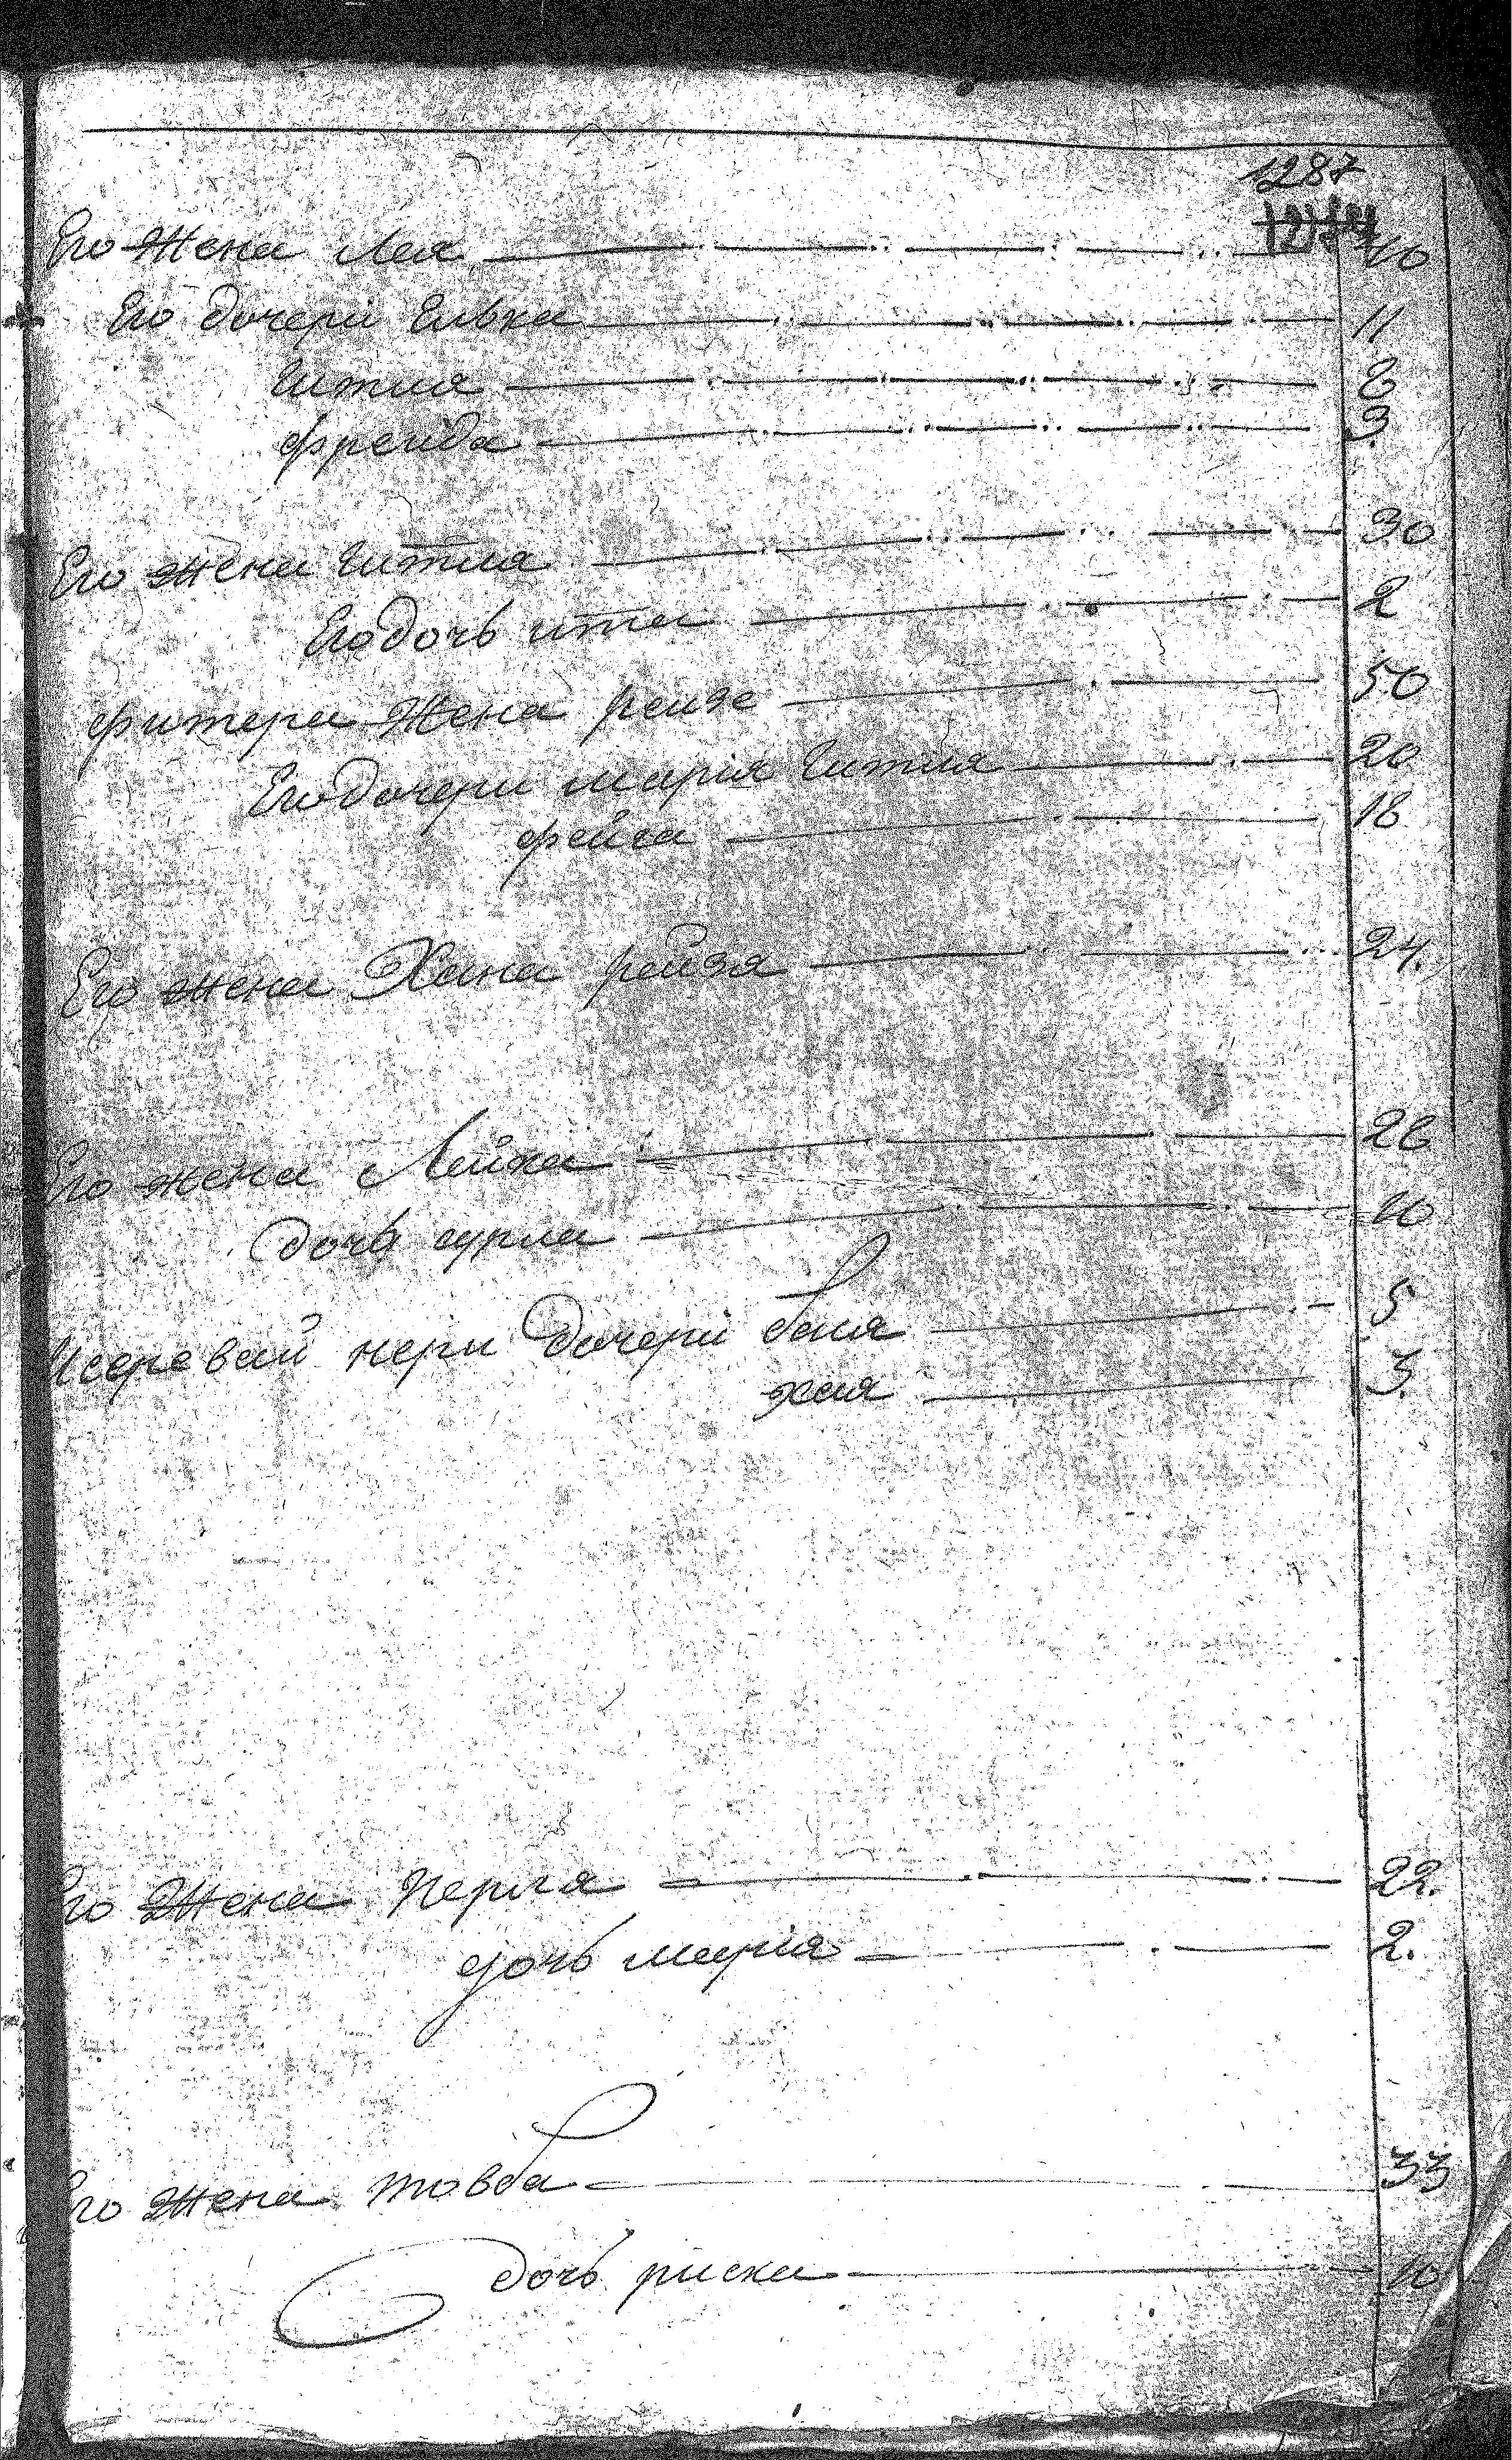 1287
Его Жена Лея 40
Его дочери Елька 11
Гитля 8
фрейда 3.
Его жена Гитля 30
Его дочь ита 2
фитера Жена рейзе 50
Его дочери марія Гитля 20
фейга 18
Его жена Хана рейзя 24.
Его жена Лейка 26
дочь сурла 10
дочери бася 5
хая 3.
Его Жена Перля 22.
дочь марія 2.
Его Жена товба 33
дочь риска 10